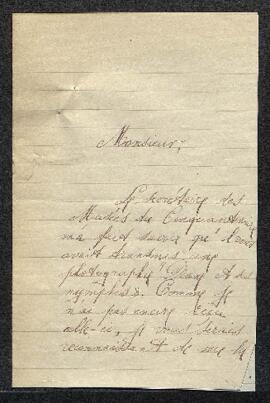 Monsieur,
Le secrétaire des
Musées du Cinquantenaire
m'a fait savoir qu'il vous
avait transmis une
photographie "Pan et des
nymphes". Comme je
n'ai pas encore reçu
celle-ci, je vous serais
reconnaissant de me la